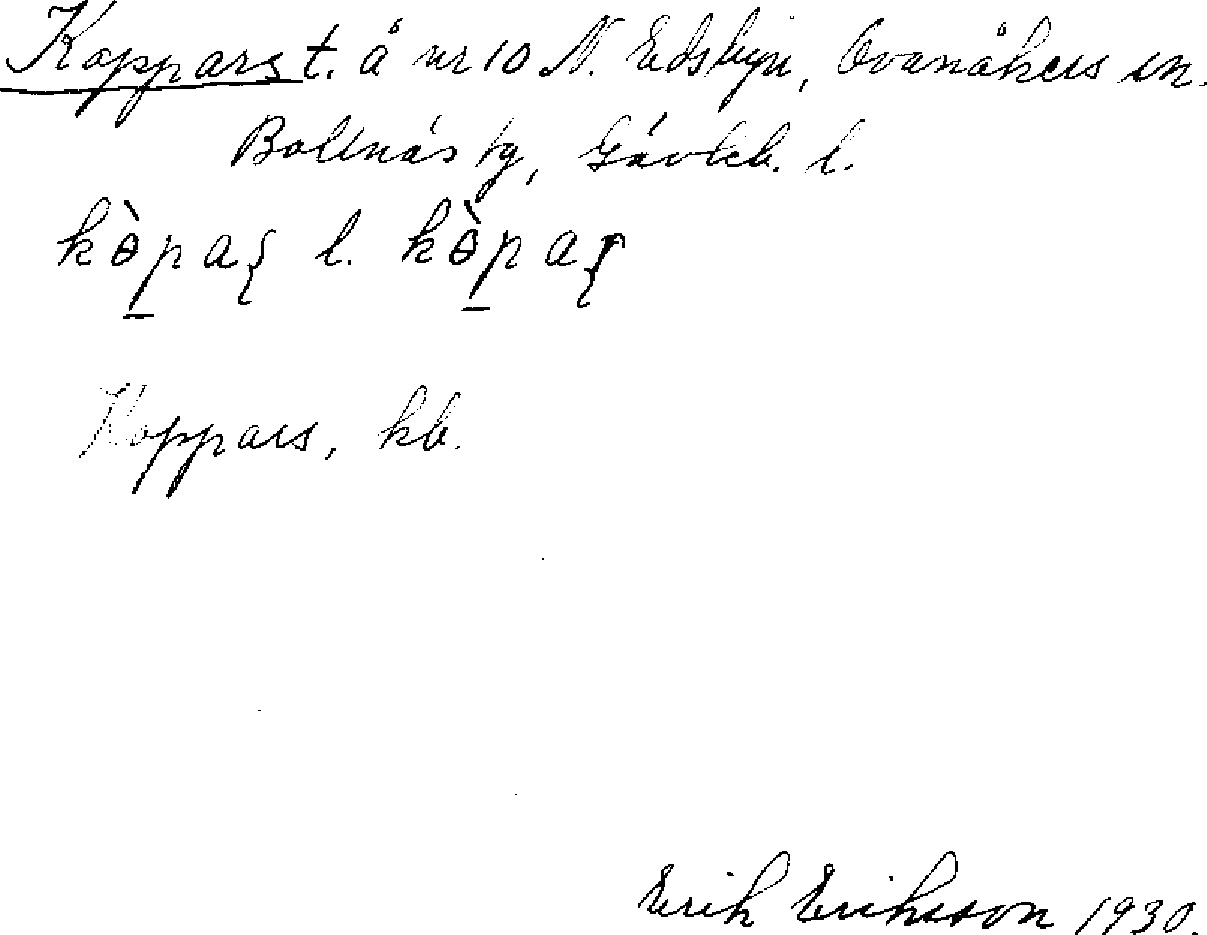 Koppars t. å nr 10 N. Edsbyn, Ovanåkers sn.
Bollnäs tg, Gävleb. l.
kɵ̀p̱aʂ l. kɵ̀p̱aʂ
Koppars, kb.
Erik Eriksson 1930.